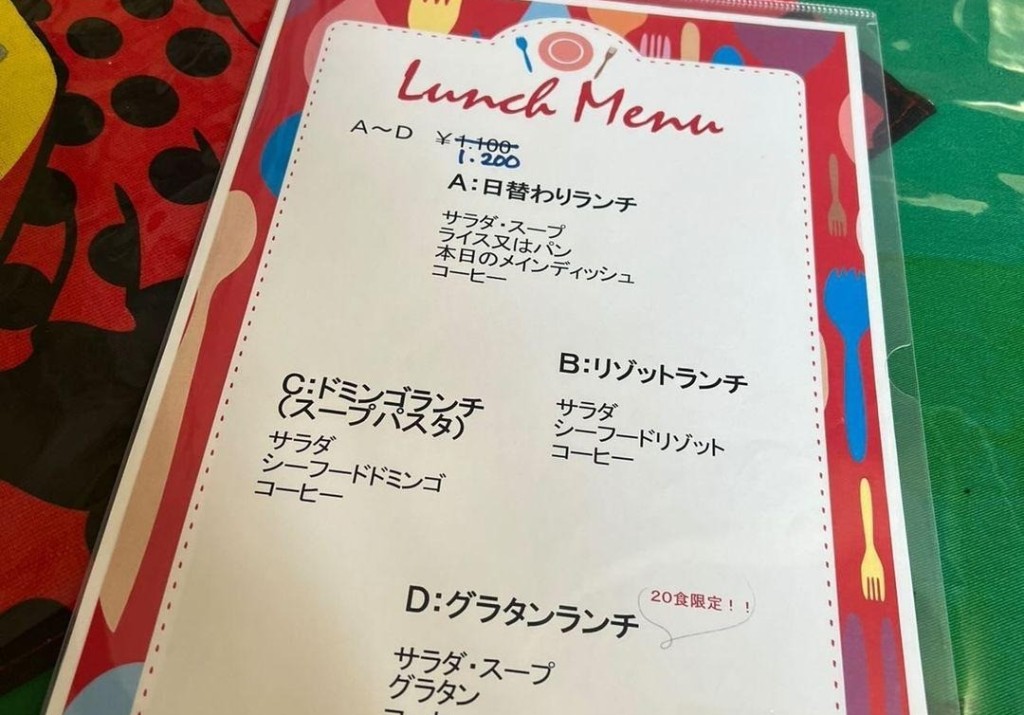 Lunch Menu
A～D ￥1.100
1.200
A：日替わりランチ
サラダ・スープ
ライス又はパン
本日のメインディッシュ
コーヒー
B：リゾットランチ
サラダ
シーフードリゾット
コーヒー
C：ドミンゴランチ
（スープパスタ）
サラダ
シーフードドミンゴ
コーヒー
D：グラタンランチ
20食限定！！
サラダ・スープ
グラタン